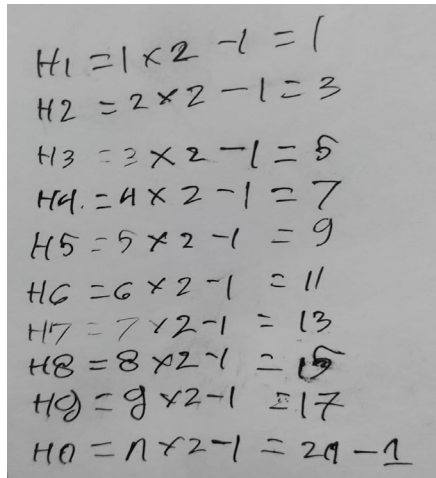 H1 = 1 × 2 - 1 = 1
H2 = 2 × 2 - 1 = 3
H3 = 3 × 2 - 1 = 5
H4. = 4 × 2 - 1 = 7
H5 = 5 × 2 - 1 = 9
H6 = 6 × 2 - 1 = 11
H7 = 7 × 2 - 1 = 13
H8 = 8 × 2 - 1 = 15
H9 = 9 × 2 - 1 = 17
Hn = n × 2 - 1 = 2n - 1